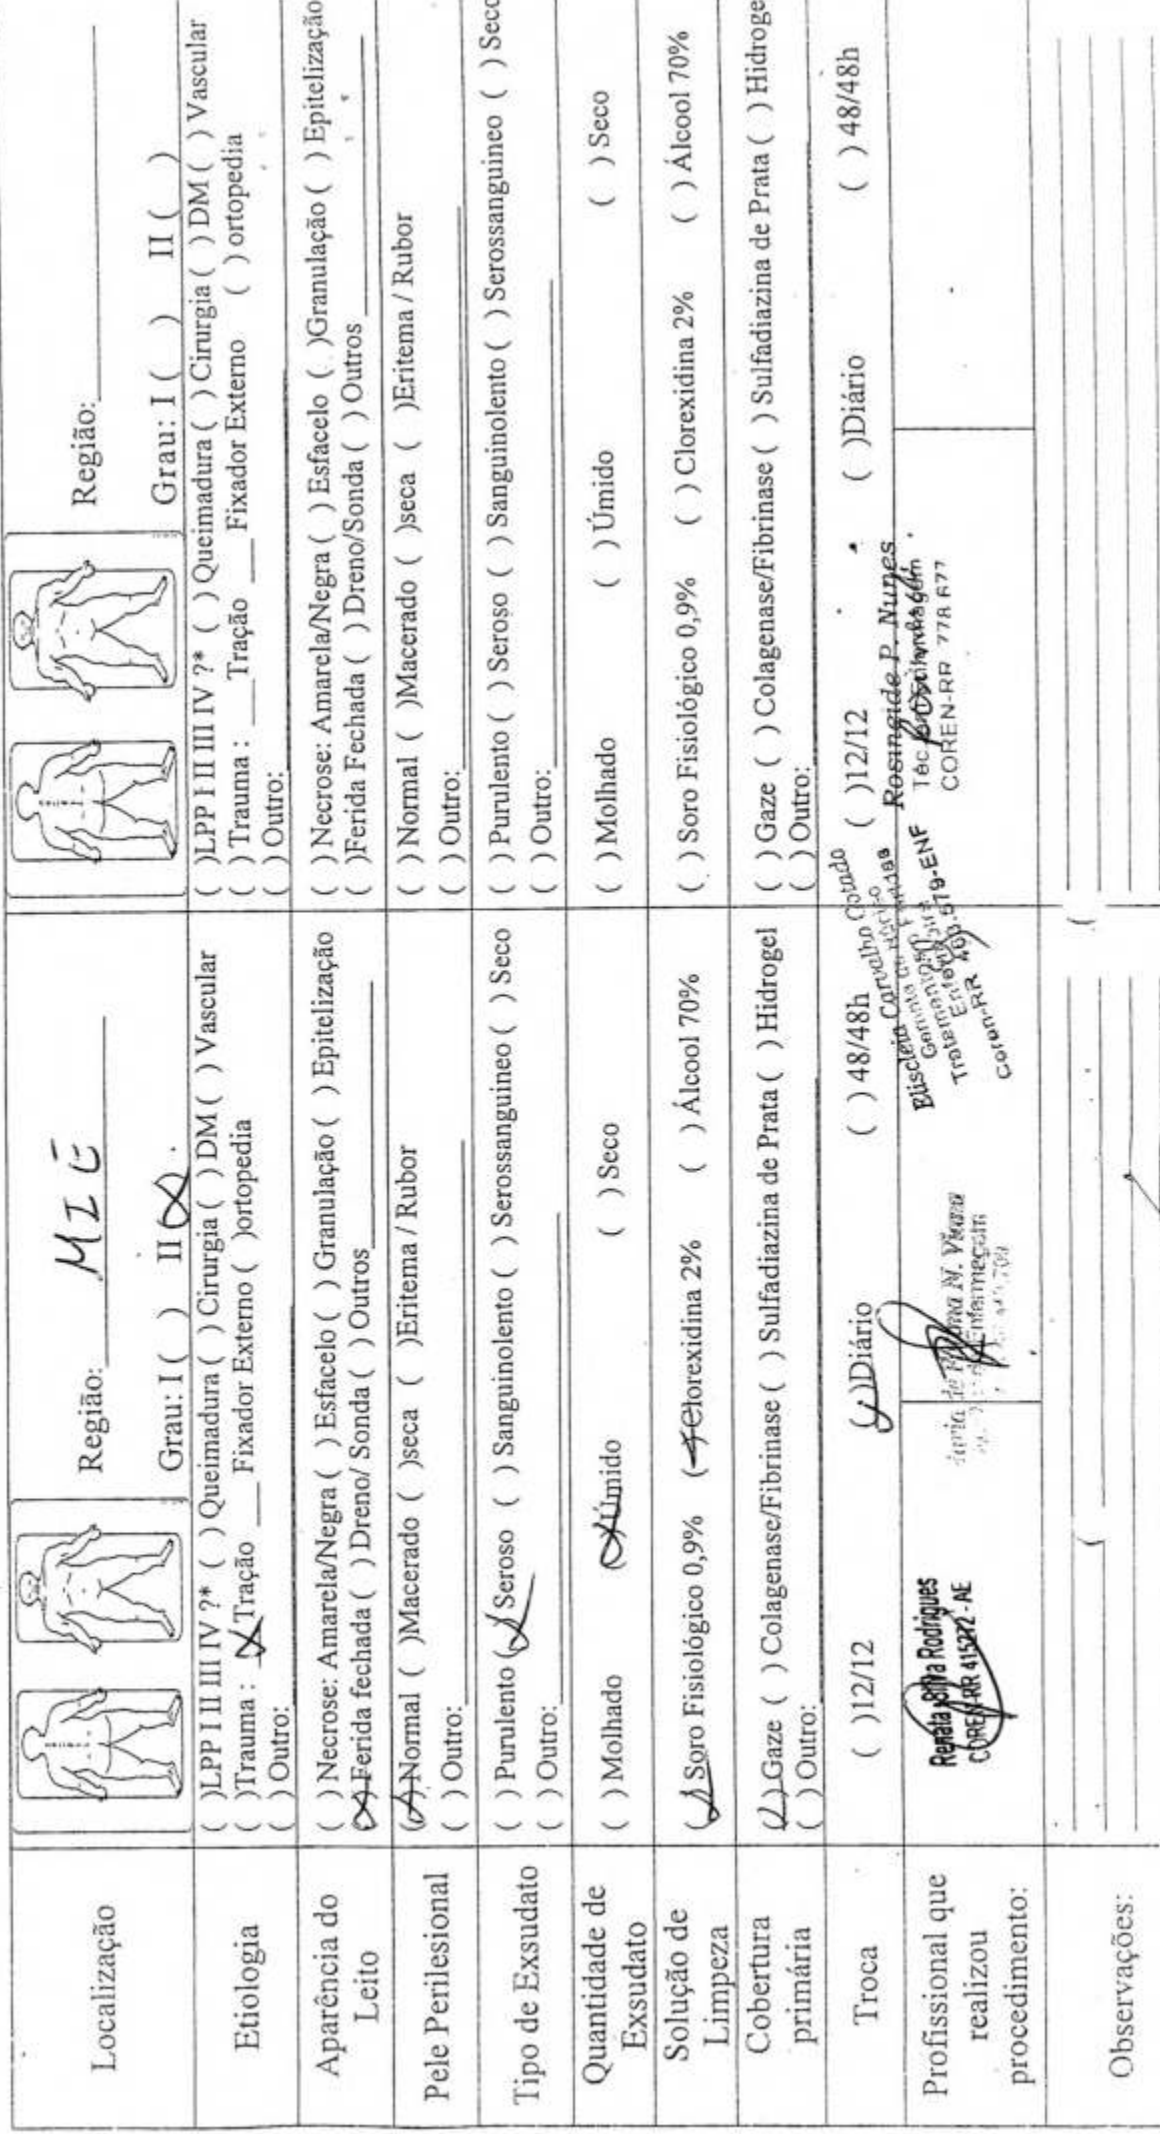 Localização
Região: MIE
Grau: I ( ) II (X).
Região:
Grau: I ( ) II ( )
Etiologia
( )LPP I II III IV ?* ( ) Queimadura ( ) Cirurgia ( ) DM ( ) Vascular
( )Trauma : X Tração ___ Fixador Externo ( )ortopedia
( ) Outro:
( )LPP I II III IV ?* ( ) Queimadura ( ) Cirurgia ( ) DM ( ) Vascular
( ) Trauma : ___Tração ___ Fixador Externo ( ) ortopedia
( ) Outro:
Aparência do
Leito
( ) Necrose: Amarela/Negra ( ) Esfacelo ( ) Granulação ( ) Epitelização
(X)Ferida fechada ( ) Dreno/ Sonda ( ) Outros
( ) Necrose: Amarela/Negra ( ) Esfacelo ( )Granulação ( ) Epitelização
( )Ferida Fechada ( ) Dreno/Sonda ( ) Outros
Pele Perilesional
(X)Normal ( )Macerado ( )seca ( )Eritema / Rubor
( ) Outro:
( ) Normal ( )Macerado ( )seca ( )Eritema / Rubor
( ) Outro:
Tipo de Exsudato
( ) Purulento (X) Seroso ( ) Sanguinolento ( ) Serossanguineo ( ) Seco
( ) Outro:
( ) Purulento ( ) Seroso ( ) Sanguinolento ( ) Serossanguineo ( ) Seco
( ) Outro:
Quantidade de
Exsudato
( ) Molhado (X)Úmido ( ) Seco
( ) Molhado ( ) Úmido ( ) Seco
Solução de
Limpeza
(X) Soro Fisiológico 0,9% (X)Clorexidina 2% ( ) Álcool 70%
( ) Soro Fisiológico 0,9% ( ) Clorexidina 2% ( ) Álcool 70%
Cobertura
primária
(X)Gaze ( ) Colagenase/Fibrinase ( ) Sulfadiazina de Prata ( ) Hidrogel
( ) Outro:
( ) Gaze ( ) Colagenase/Fibrinase ( ) Sulfadiazina de Prata ( ) Hidroge
( ) Outro:
Troca
( )12/12 (X)Diário ( ) 48/48h
( )12/12 ( )Diário ( ) 48/48h
Profissional que
realizou
procedimento:
Renata Rodrigues
COREN-RR 415272-AE
N. Viana
Enfermagem
Carvalho
Coren-RR
Rosingide P. Nunes
Téc
COREN-RR 778 677
Observações: